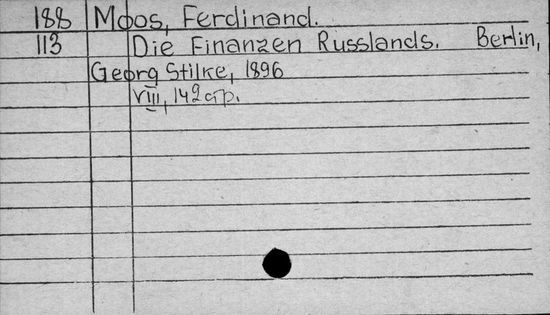 188 Moos, Ferdinand.
113 Die Finanzen Russlands. Berlin,
Georg Stilke, 1896
VIII, 142 стр.